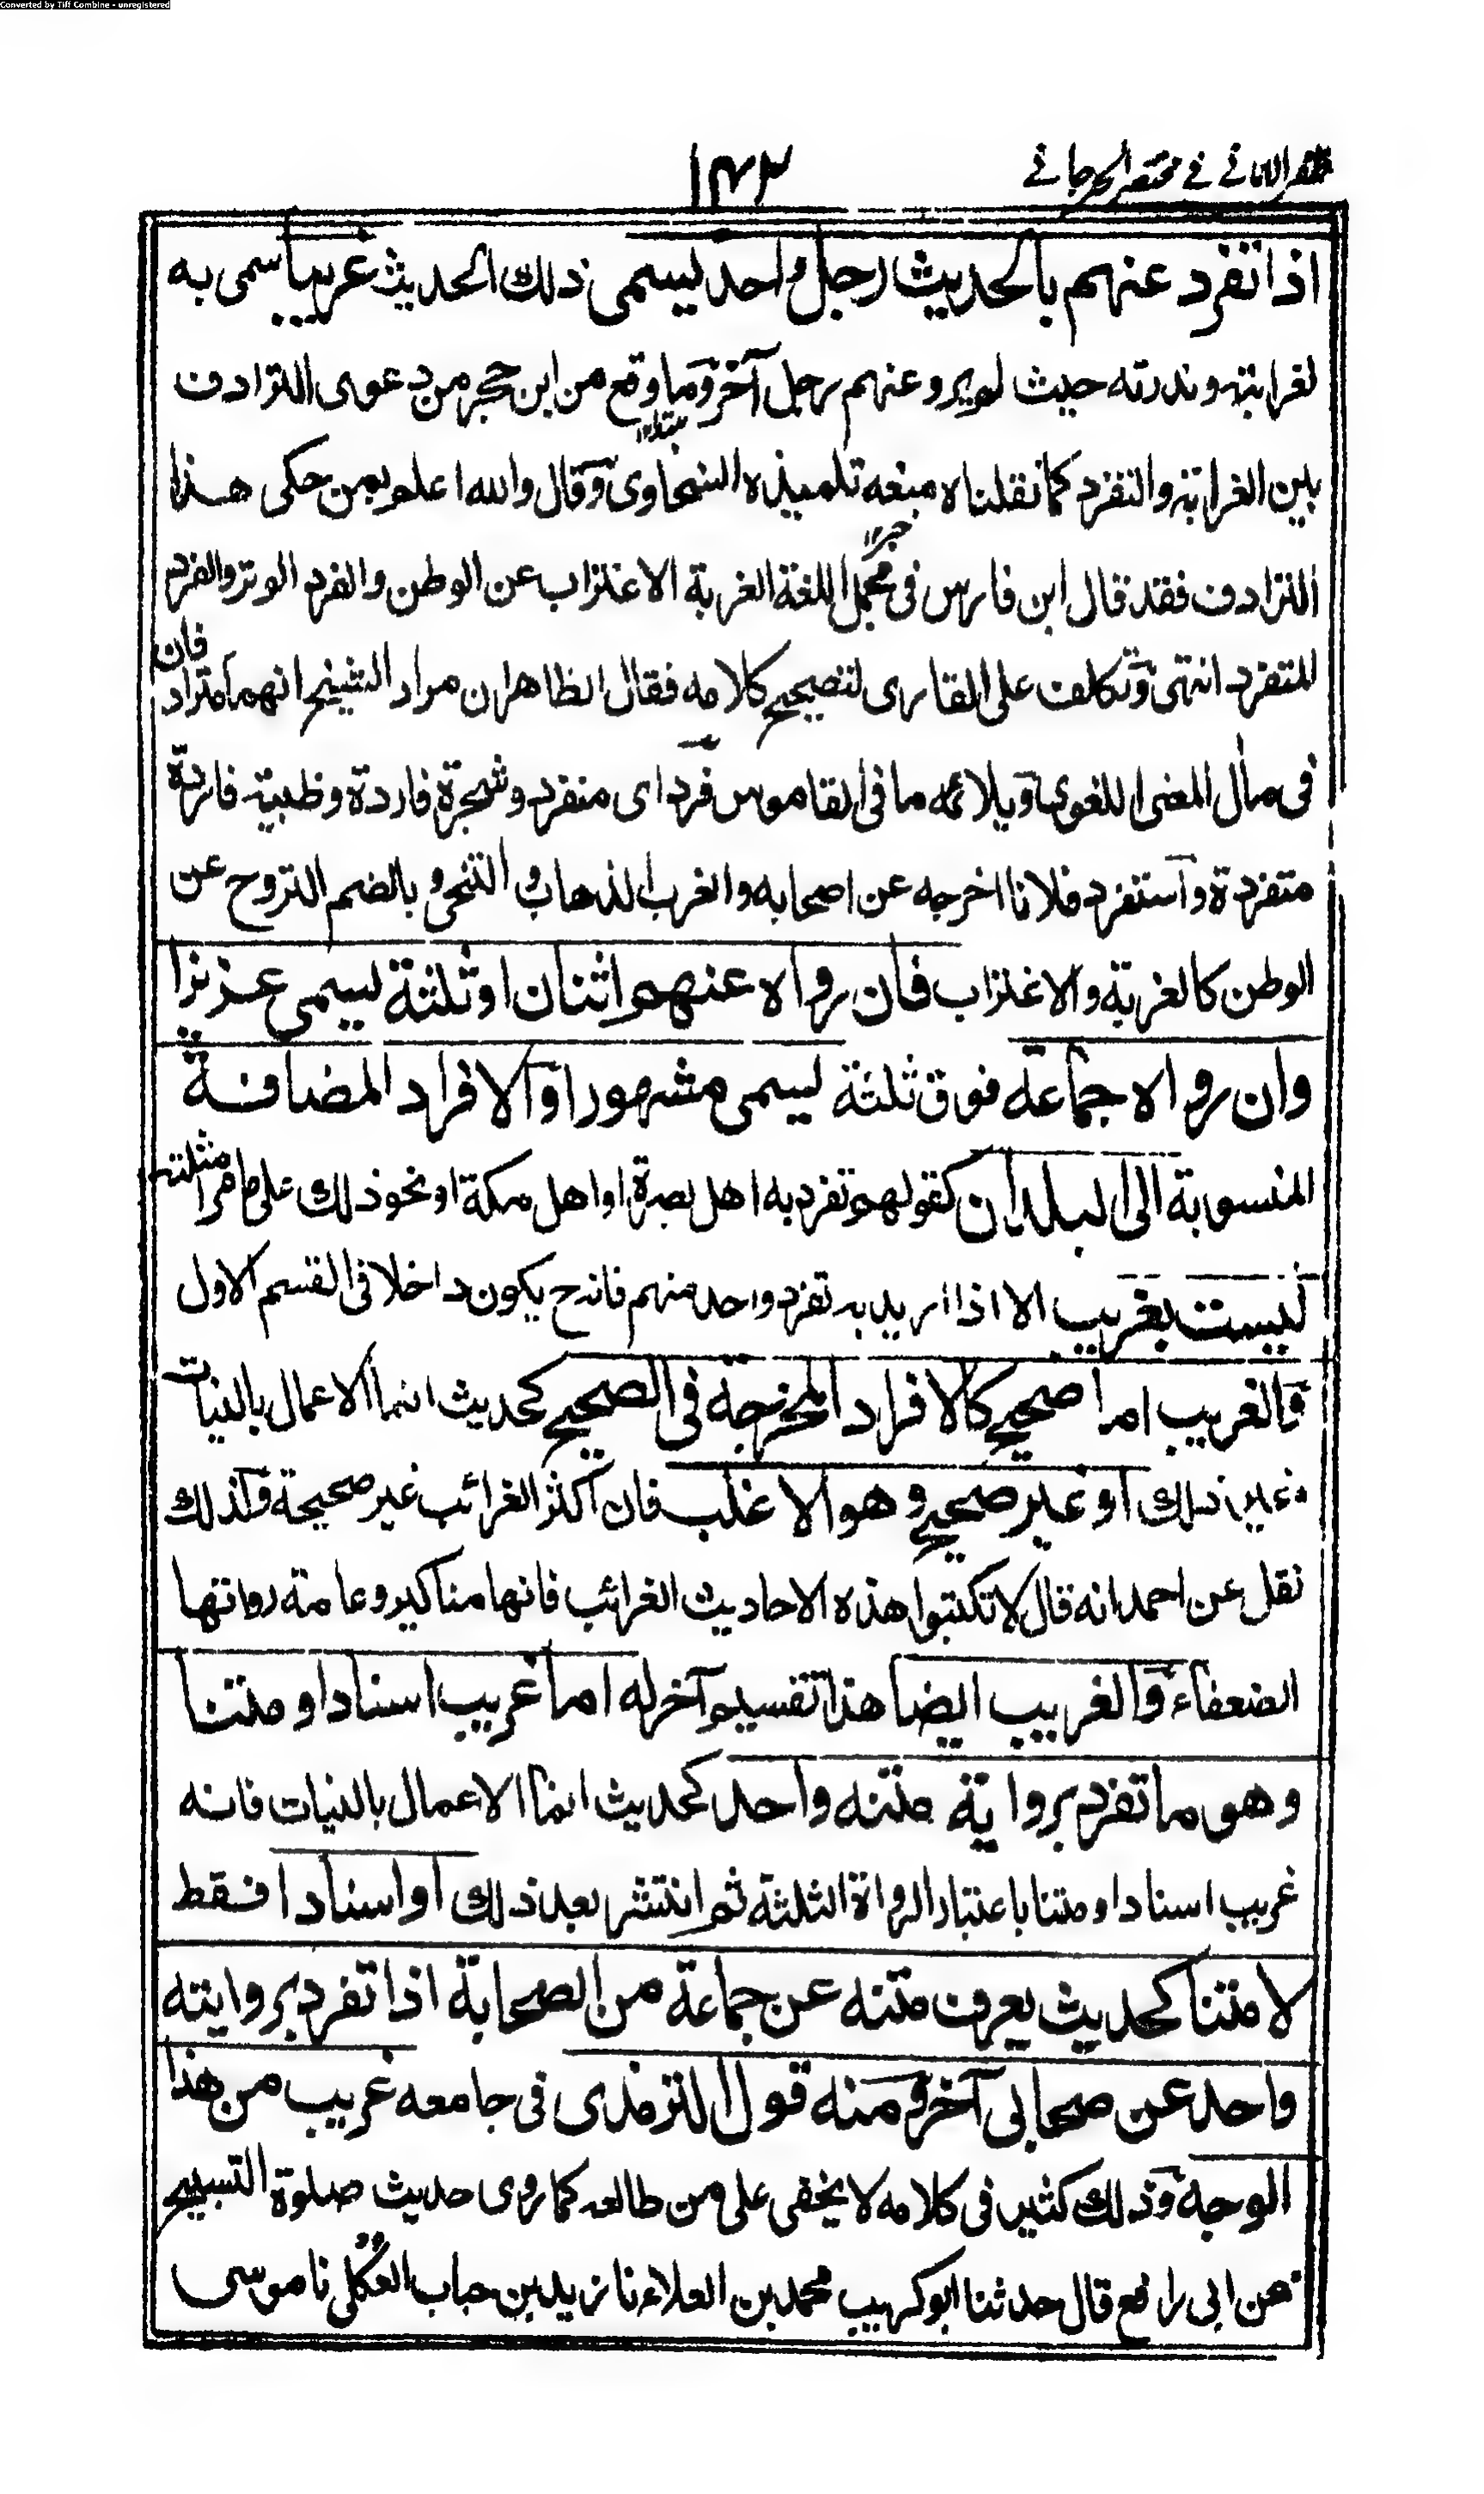 Converted by Tiff Combine - unregistered
ظفر الاماني في مختصر الجرجاني
١٧٣
اذا تفرد عنهم بالحديث رجل واحد يسمى ذلك الحديث غريبا سمى به
لغرابته وندرته حيث لم يرو عنهم رجل آخر وما وقع من ابن حجر من دعوى الترادف
بين الغرابة والتفرد كما نقلناه منعه تلميذه السخاوى وقال والله اعلم بمن حكى هذا
الترادف فقد قال ابن فارس فى مجمل اللغة الغربة الاغتراب عن الوطن والفرد الوتر والفرد
المتفرد انتهى وتكلف على القارى لتصحيح كلامه فقال الظاهر ان مراد الشيخ انهما مترادفان
فى مآل المعنى اللغوى ويلائمه ما فى القاموس فرد اى منفرد وشجرة فاردة وظبية فاردة
متفردة واستفرد فلانا اخرجه عن اصحابه والغرب الذهاب والتنحى وبالضم النزوح عن
الوطن كالغربة والاغتراب فان رواه عنهم اثنان او ثلثة يسمى عزيزا
وان رواه جماعة فوق ثلثة يسمى مشهورا والافراد المضافة
المنسوبة الى البلدان كقولهم تفرد به اهل بصرة او اهل مكة او نحو ذلك على ما مر امثلته
ليست بغريب الا اذا اريد به تفرد واحد منهم فانه ح يكون داخلا فى القسم الاول
والغريب اما صحيح كالافراد المخرجة فى الصحيح كحديث انما الاعمال بالنيات
وغير ذلك او غير صحيح وهو الاغلب فان اكثر الغرائب غير صحيحة وكذلك
نقل عن احمد انه قال لا تكتبوا هذه الاحاديث الغرائب فانها مناكير وعامة رواتها
الضعفاء والغريب ايضا هذا تفسير آخر له اما غريب اسنادا ومتنا
وهو ما تفرد برواية متنه واحد كحديث انما الاعمال بالنيات فانه
غريب اسنادا ومتنا باعتبار الرواة الثلثة ثم انتشر بعد ذلك او اسنادا فقط
لا متنا كحديث يعرف متنه عن جماعة من الصحابة اذا تفرد بروايته
واحد عن صحابى آخر ومنه قول الترمذى فى جامعه غريب من هذا
الوجه وذلك كثير فى كلامه لا يخفى على من طالعه كما روى حديث صلوة التسبيح
عن ابى رافع قال حدثنا ابو كريب محمد بن العلاء نا زيد بن حباب العكلى نا موسى